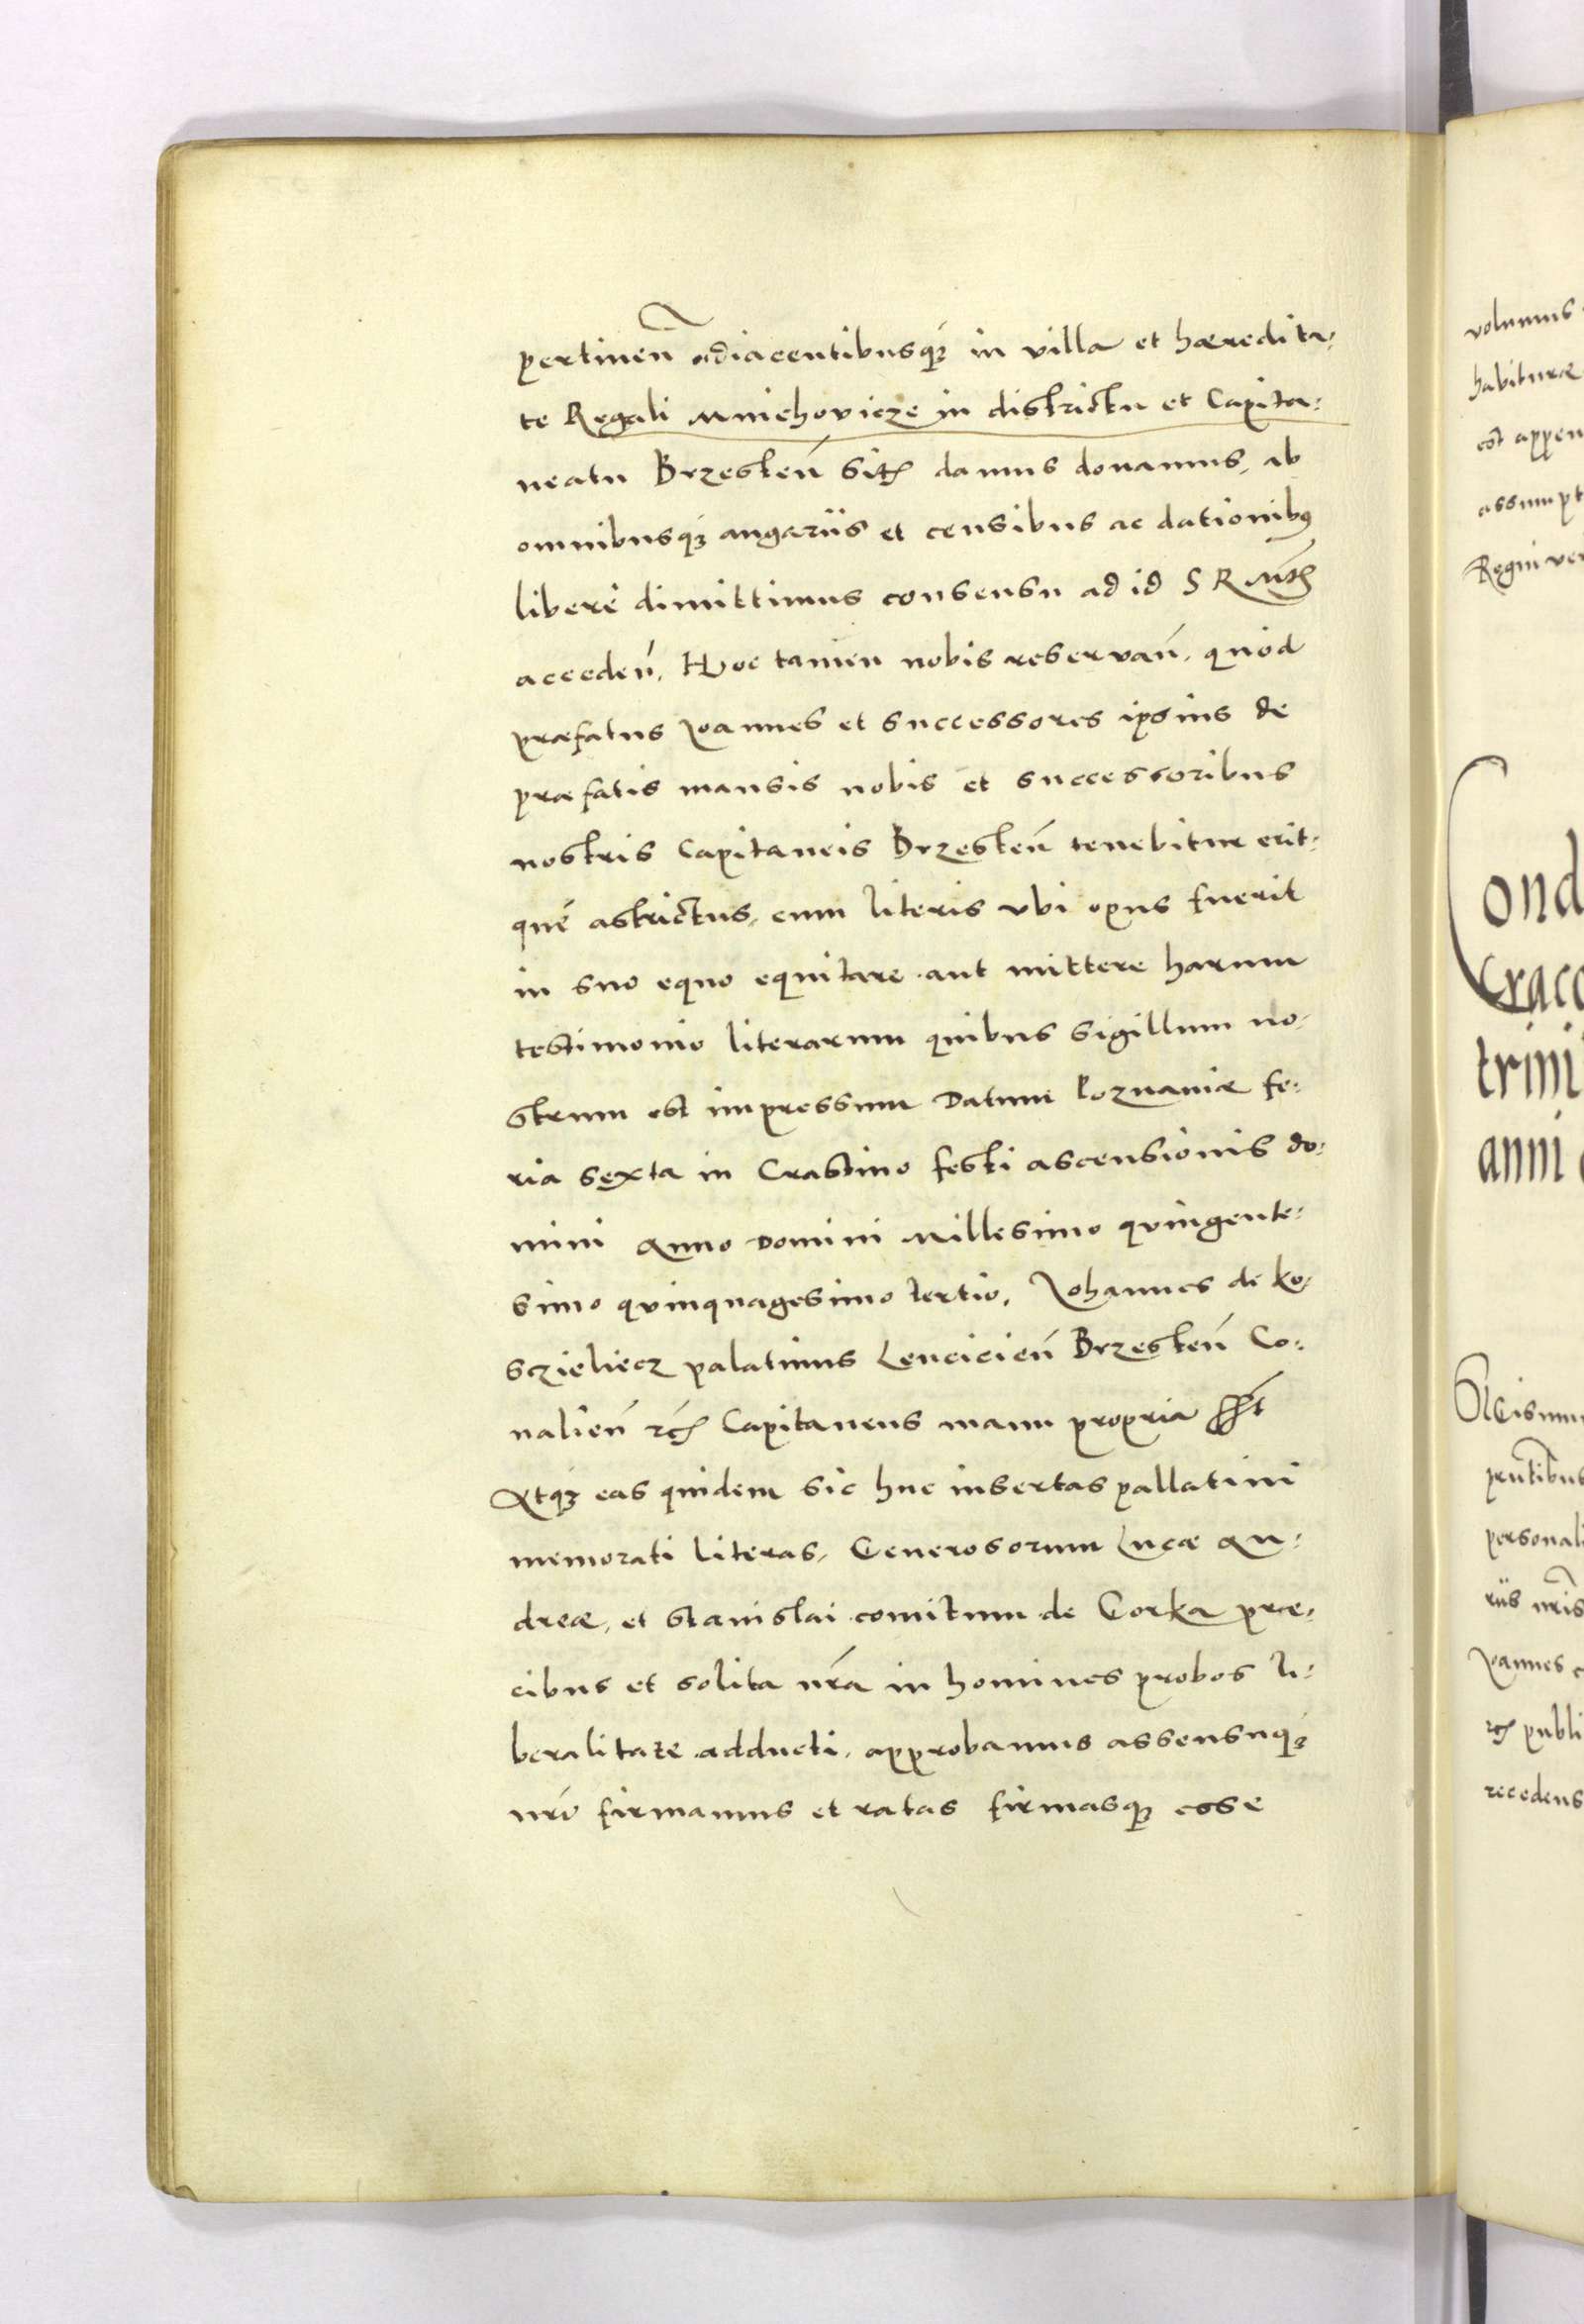 pertinen̄ adiacentibusq́ꝫ in villa et hæredita:
te Regali Mniehovicze in districtu et Capita:
neatu Brzesten̄ sitis damus donamus, ab
omnibusq́ꝫ angariis et censibus ac dationibꝰ
liberé dimittimus consensu ad id S R Mttis
acceden̄, Hoc tamen nobis reservan̄, quod
præfatus Joannes et successores ipsius de
præfatis mansis nobis et successoribus
nostris Capitaneis Brzesten̄ tenebitur erit:
qué astrictus, cum literis vbi opus fuerit
in suo equo equitare aut mittere harum
testimonio literarum quibus sigillum no:
strum est impressum Datum Poznaniæ fe:
ria sexta in Crastino festi ascensionis do:
mini Anno Domini Millesimo quingente:
simo quinquagesimo tertio, Johannes de Ko:
sczieliecz palatinus Lencicien̄ Brzesten̄ Co:
nalien̄ etc Capitaneus manu propria sst
Atqꝫ eas quidem sic huc insertas pallatini
memorati literas, Generosorum Lucæ An:
dreæ, et Stanislai comitum de Gorka præ:
cibus et solita nr̄a in homines probos li:
beralitate adducti, approbamus assensuq́ꝫ
nr̄o firmamus et ratas firmasqꝫ esse
volumus
habituræ
est appen
assumpt
Regni ver
Cond
Craco
trini
anni
prn̄tibus
personali
riis nr̄is
Joannes c
etc publi
recedens